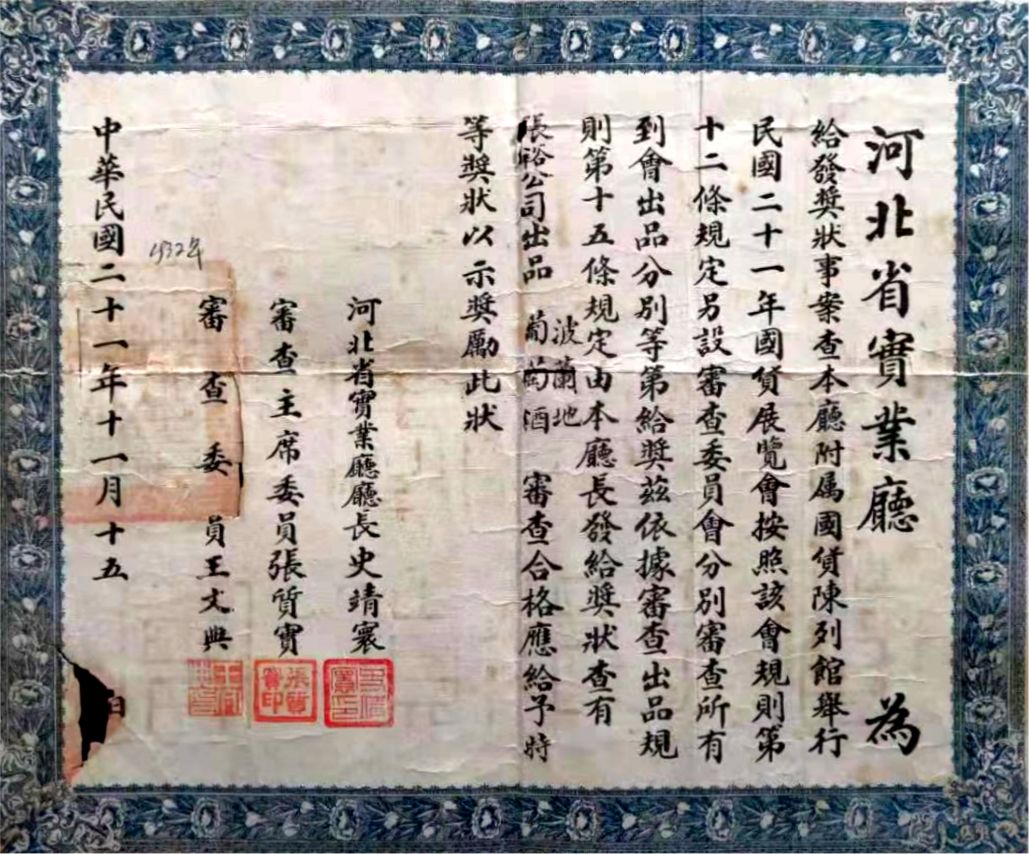 河北省實業廳 為
給發獎狀事案查本廳附屬國貨陳列館舉行
民國二十一年國貨展覽會按照該會規則第
十二條規定另設審查委員會分別審查所有
到會出品分別等第給獎茲依據審查出品規
則第十五條規定由本廳長發給獎狀查有
張裕公司出品 波蘭地 葡萄酒 審查合格應給予特
等獎狀以示獎勵此狀
河北省實業廳廳長史靖寰
審查主席委員張質實
審查委員王文典
1932年
中華民國二十一年十一月十五日
張質實印